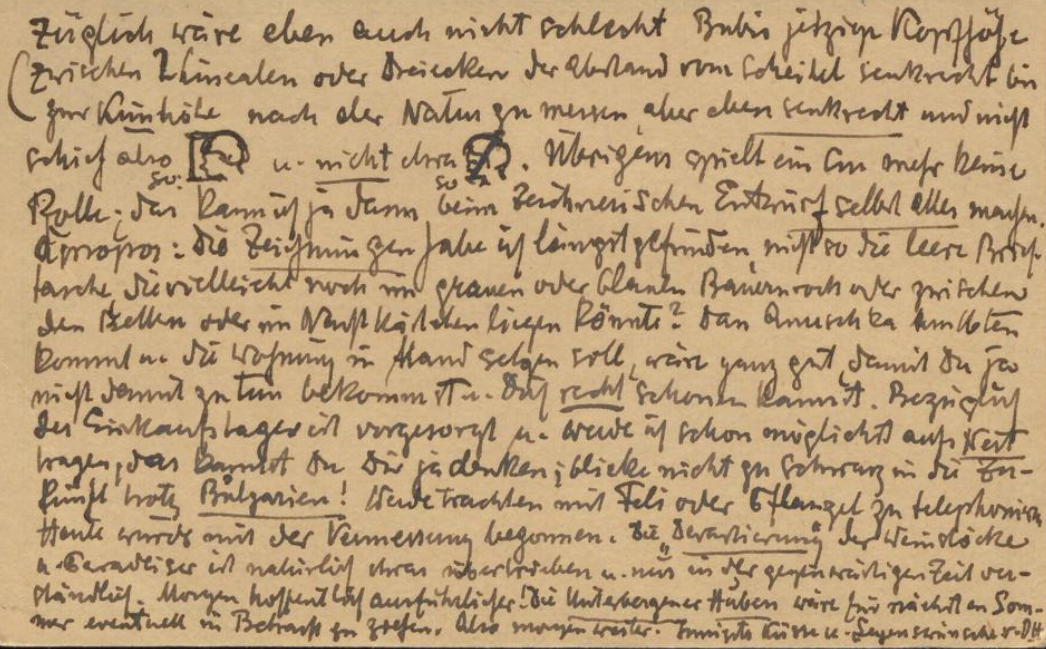 züglich wäre eben auch nicht schlecht Bubis jetzige Kopfhöhe
(zwischen Linealen oder Dreiecken der Abstand vom Scheitel senkrecht bis
zur Kinnhöhe nach der Natur zu messen, aber eben senkrecht und nicht
schief also so: u. nicht etwa so. Übrigens spielt ein cm mehr keine
Rolle; das kann ich ja dann beim zeichnerischen Entwurf selbst alles machen.
Apropos: Die Zeichnungen habe ich längst gefunden, nicht so die leere Brief-
tasche, die vielleicht noch im grauen oder blauen Bauernrock oder zwischen
den oder im Nachtkästchen liegen könnte? Dass Anuschka
kommt u. die Wohnung in Stand setzen soll, wäre ganz gut, damit Du ja
nicht damit zu tun bekommst u. Dich recht schonen kannst. Bezüglich
des Einkaufslagers ist vorgesorgt u. werde ich schon möglichst aufs
tragen, das kannst Du Dir ja denken; blicke nicht zu schwarz in die Zu-
kunft trotz Bulgarien! Werde trachten mit Feli oder zu telephonieren
Heute wurde mit der Vermessung begonnen. Die „Devastierung“ der Weinstöcke
u. Paradeiser ist natürlich etwas übertrieben u. nur in der gegenwärtigen Zeit ver-
ständlich. Morgen hoffentlich ausführlicher! Die Unterbergener Huben wäre für nächsten Som-
mer eventuell in Betracht zu ziehen. Also morgen weiter. Innigste Küsse u. Segenswünsche v. DH